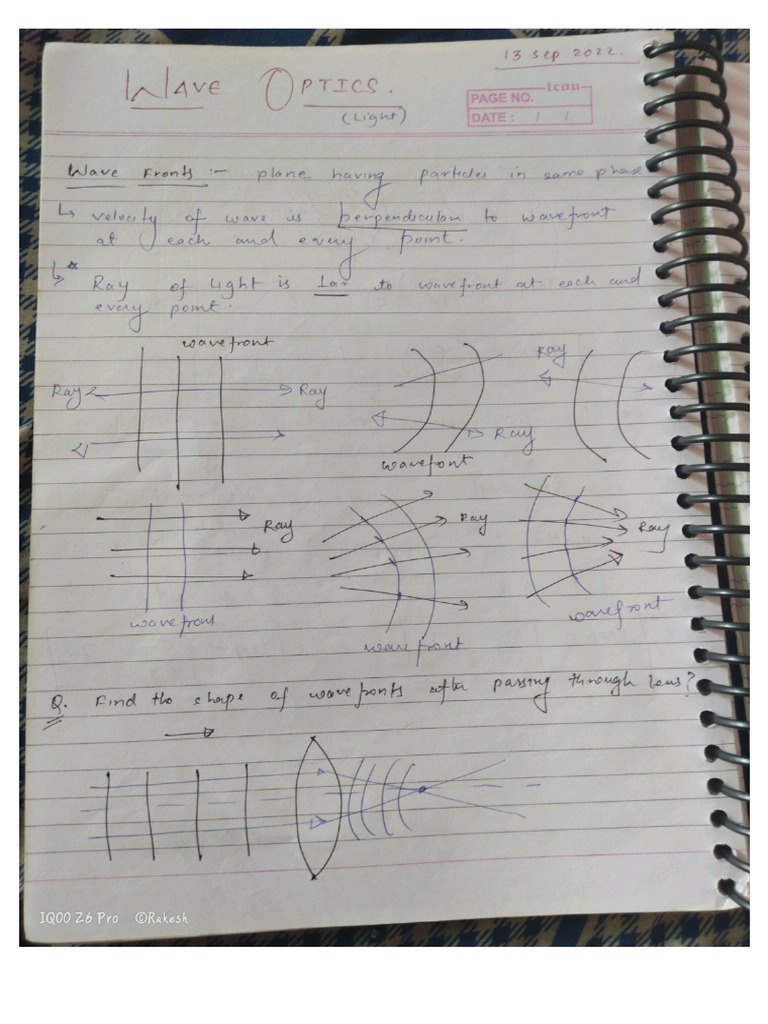 13 Sep 2022.
WAVE OPTICS.
(Light)
icon
PAGE NO.
DATE: / /
Wave Fronts :- plane having particles in same phase
↳ velocity of wave is perpendicular to wavefront
at each and every point.
↳* Ray of Light is ⊥ar to wavefront at each and
every point.
wavefront
Ray
Ray
Ray
Ray
wavefont
Ray
Ray
Ray
wavefront
wavefront
wavefront
Q. Find the shape of wavefronts after passing through lens?
IQOO Z6 Pro ©Rakesh